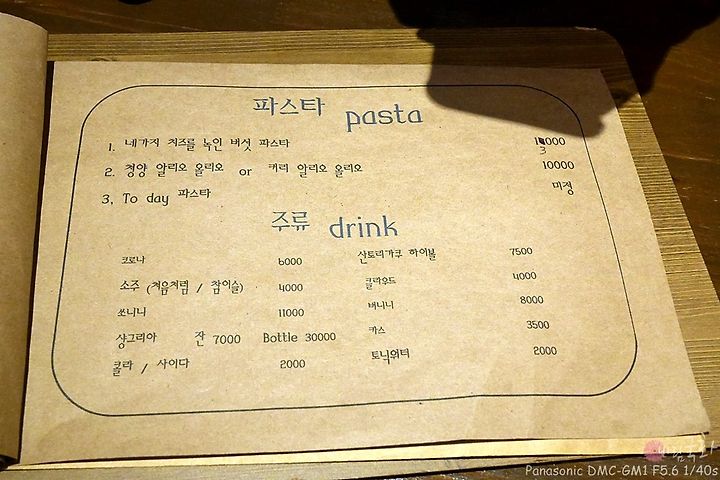 파스타 pasta
1. 네가지 치즈를 녹인 버섯 파스타 13000
2. 청양 알리오 올리오 or 커리 알리오 올리오 10000
3, To day 파스타 미정
주류 drink
코로나 6000 산토리가쿠 하이볼 7500
소주 (처음처럼 / 참이슬) 4000 클라우드 4000
쏘니니 11000 버니니 8000
샹그리아 잔 7000 Bottle 30000 카스 3500
콜라 / 사이다 2000 토닉워터 2000
Panasonic DMC-GM1 F5.6 1/40s